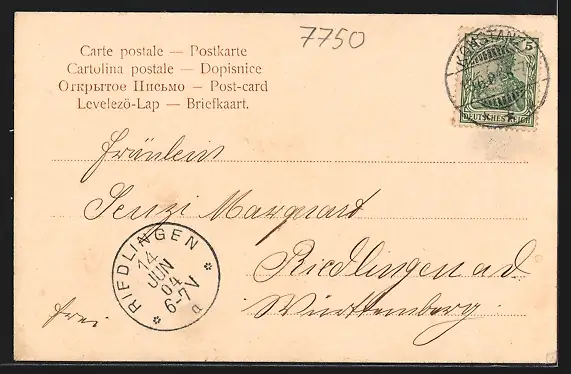 7750
Carte postale — Postkarte
Cartolina postale — Dopisnice
Открытое Письмо — Post-card
Levelező-Lap — Briefkaart.
KONSTANZ
5
DEUTSCHES REICH
Fräulein
Senzi Marquart
Riedlingen a.d.
Württemberg.
frei
RIEDLINGEN
14
JUN
04
6-7V
a